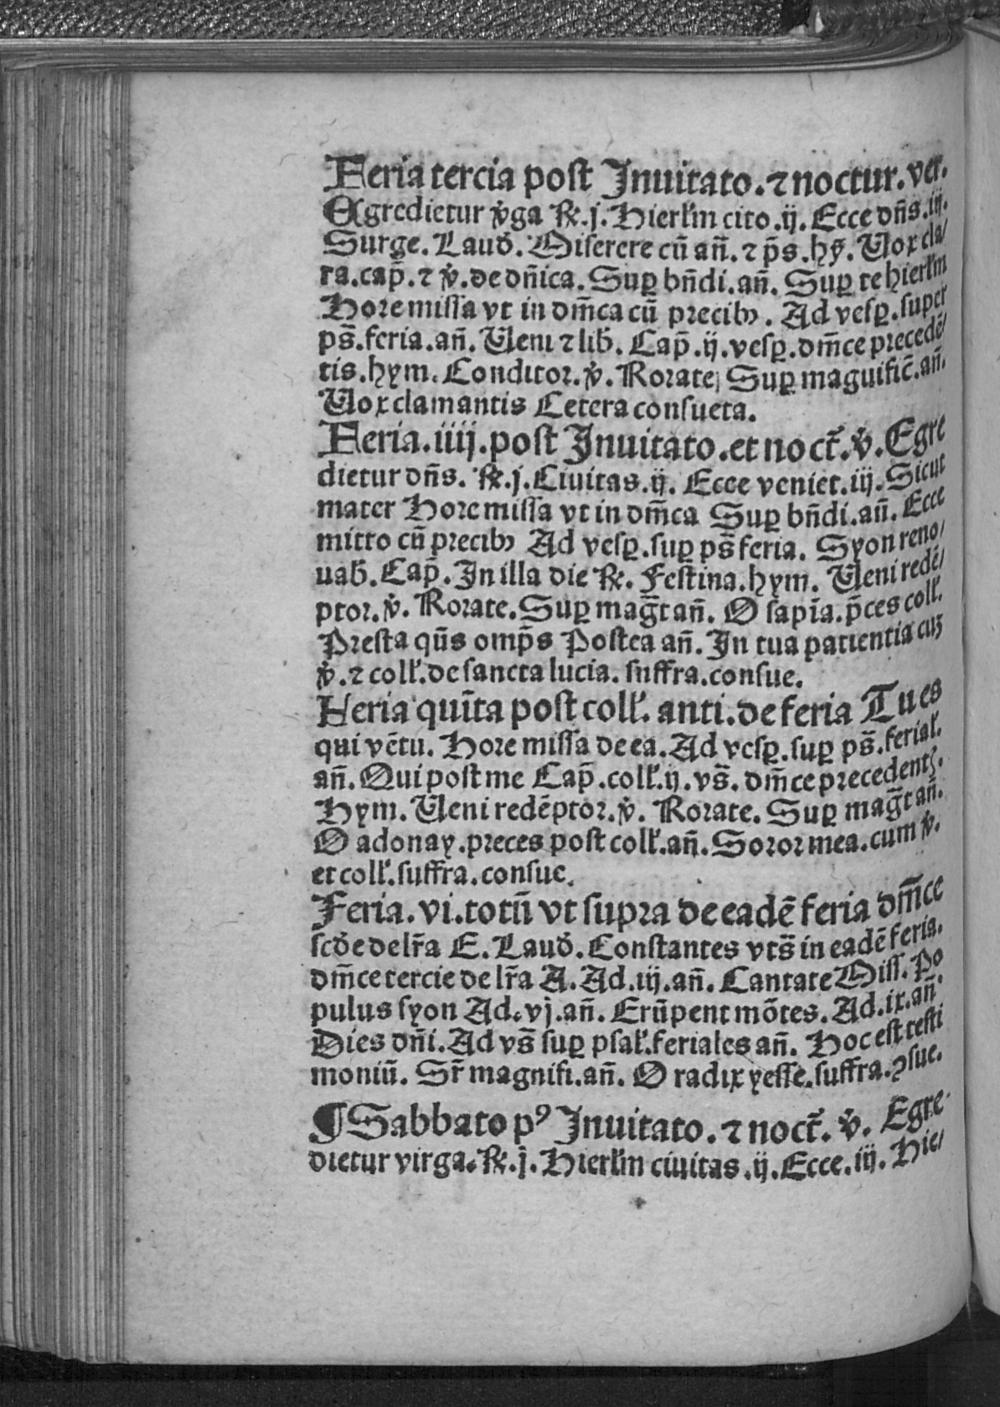 Feria tercia post Inuitato. ⁊ noctur. ver.
Egredietur v̾ga ℟. j. Hierlm̄ cito .ij. Ecce dn̄s. iij.
Surge. Laud̾. Miserere cū an̄. ⁊ p̄s. hy̾. Vox cla/
ra. cap̄. ⁊ v̾. de dn̄ica. Suꝑ bn̄di. an̄. Suꝑ te hierlm̄
Hore missa vt in dm̄ca cū precibꝰ. Ad vesꝑ. super
ps̄. feria. an̄. Veni ⁊ lib̾. Cap̄. ij. vesꝑ. dm̄ce precedē/
tis. hym. Conditor. v̾. Rorate; Suꝑ maguific̄. an̄.
Vox clamantis Cetera consueta.
Feria. iiij. post Inuitato. et noct̄. v̾. Egre
dietur dn̄s. ℟. j. Ciuitas. ij. Ecce veniet. iij. Sicut
mater Hore missa vt in dm̄ca Suꝑ bn̄di. an̄. Ecce
mitto cū precibꝰ Ad vesꝑ. suꝑ ps̄ feria. Syon reno/
uab̾. Cap̄. In illa die ℟. Festina. hym. Veni redē/
ptor. v̾. Rorate. Suꝑ mag̅t an̄. O sapīa. p̄ces coll̾.
Presta qūs omp̄s Postea an̄. In tua patientia cuꝫ
v̾. ⁊ coll̾. de sancta lucia. suffra. consue.
Feria quīta post coll̾. anti. de feria Tu es
qui vētu. Hore missa de ea. Ad vesꝑ. suꝑ ps̄. ferial̾.
an̄. Qui post me Cap̄. coll̾. ij. vs̄. dm̄ce precedentꝭ.
Hym. Veni redēptor. v̾. Rorate. Suꝑ mag̅t an̄.
O adonay. preces post coll̾. an̄. Soror mea. cum v̾.
et coll̾. suffra. consue.
Feria. vi. totū vt supra de eadē feria dm̄ce
scd̾e de lr̄a E. Laud̾. Constantes vts̄ in eadē feria.
dm̄ce tercie de lr̄a A. Ad. iij. an̄. Cantate Miss̾. Po
pulus syon Ad. vj. an̄. Erūpent mōtes. Ad. ix. an̄.
Dies dn̄i. Ad vs̄ suꝑ psal̾. feriales an̄. Hoc est testi
moniū. Sr̄ magnifi. an̄. O radix yesse. suffra. ꝯsue.
¶ Sabbato pꝰ Inuitato. ⁊ noct̄. v̾. Egre-
dietur virga. ℟. j. Hierlm̄ ciuitas. ij. Ecce. iij. Hie/